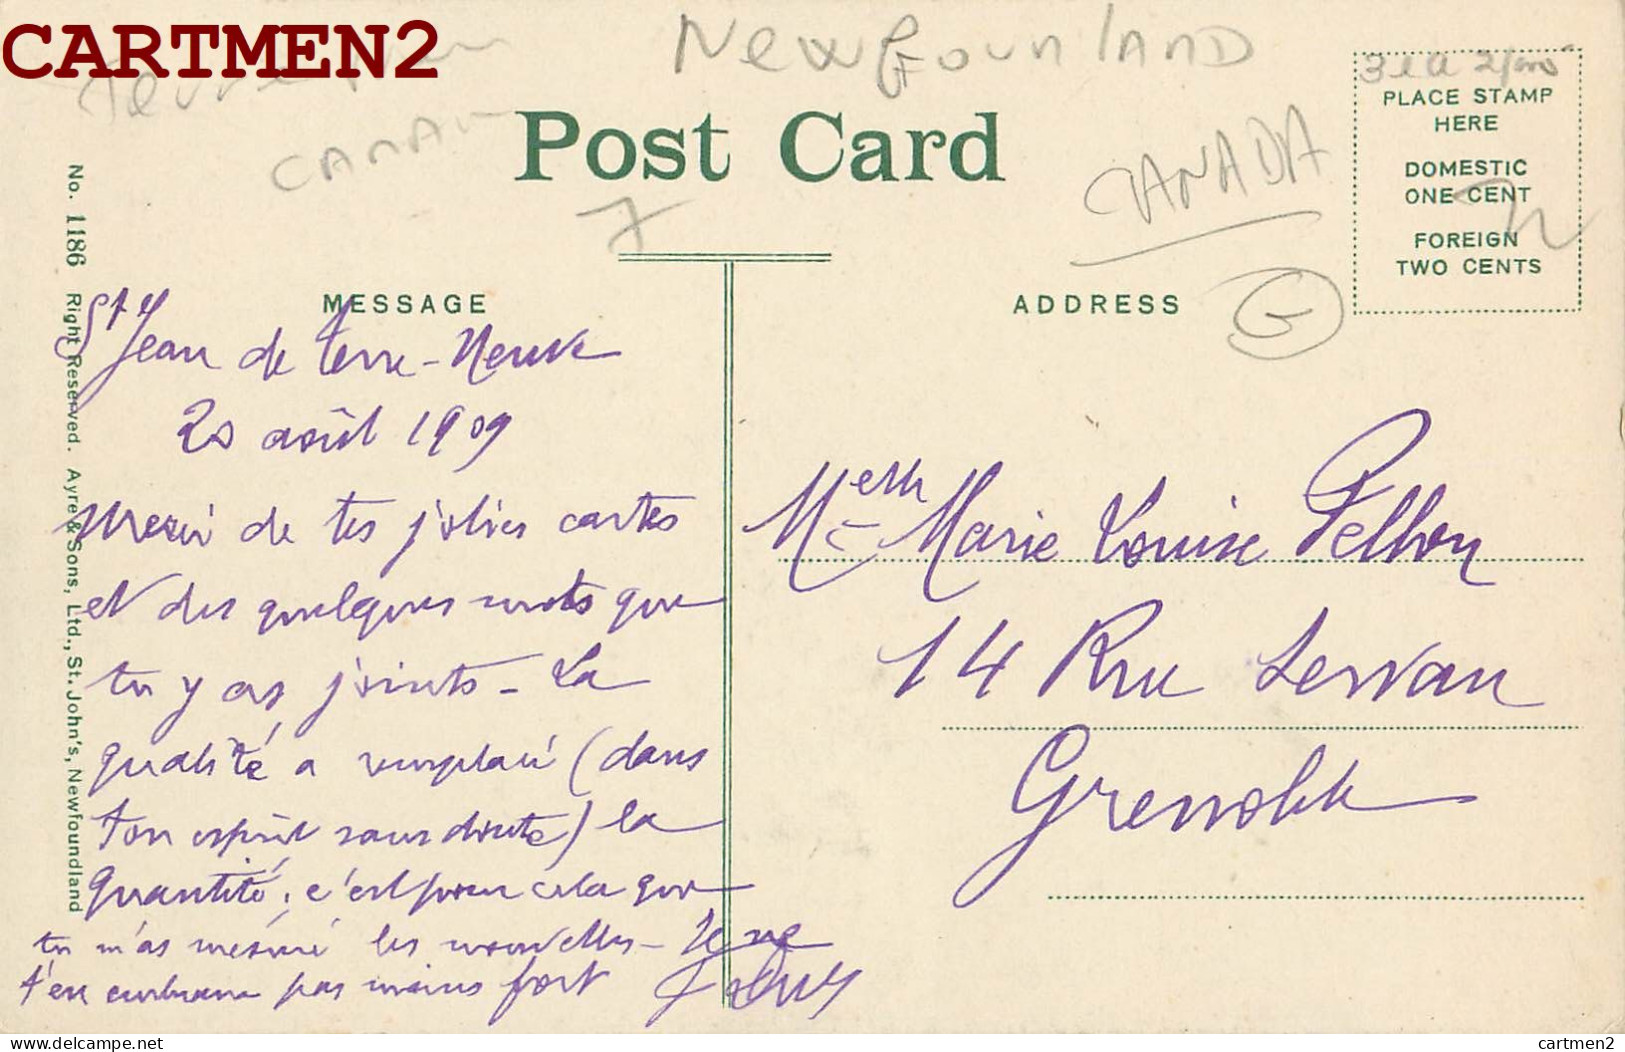 CARTMEN2
Terre
Newfounland
CANADA
Post Card
CANADA
PLACE STAMP
HERE
DOMESTIC
ONE CENT
FOREIGN
TWO CENTS
No. 1186 Right Reserved. Ayre & Sons, Ltd., St. John's, Newfoundland
MESSAGE
St Jean de terre-Neuve
20 août 1909
Merci de tes jolies cartes
et des quelques mots que
tu y as joints - La
qualité a remplacé (dans
ton esprit sans doute) la
quantité, c'est pour cela que
tu m'as mesuré les nouvelles - Je ne
t'en embrasse pas moins fort
ADDRESS
Melle Marie Louise Pellhon
14 Rue Servan
Grenoble
Delcampe.net
cartmen2